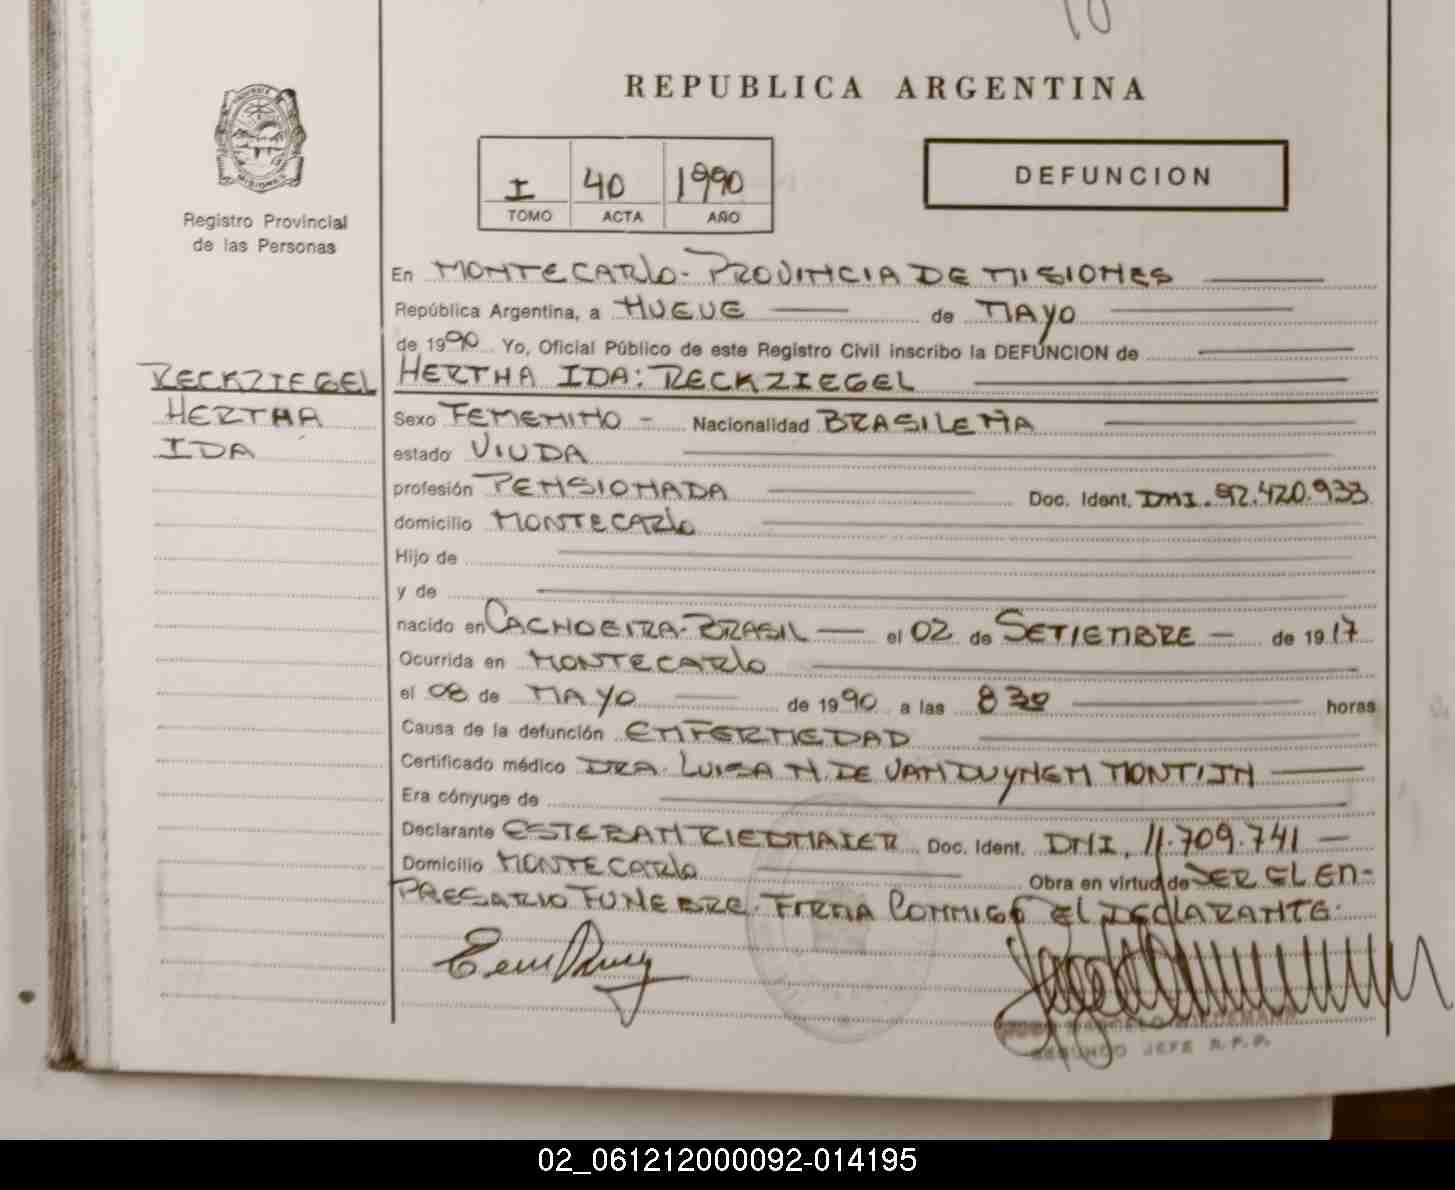 REPUBLICA ARGENTINA
I 40 1990
TOMO ACTA AÑO
DEFUNCION
MISIONES
Registro Provincial
de las Personas
En MONTECARLO - PROVINCIA DE MISIONES
República Argentina, a NUEVE de MAYO
de 1990 Yo, Oficial Público de este Registro Civil inscribo la DEFUNCION de
HERTHA IDA: RECKZIEGEL
RECKZIEGEL
HERTHA
IDA
Sexo FEMENINO - Nacionalidad BRASILEÑA
estado VIUDA
profesión PENSIONADA Doc. Ident. DNI. 92.420.933
domicilio MONTECARLO
Hijo de
y de
nacido en CACHOEIRA - BRASIL el 02 de SETIEMBRE de 1917
Ocurrida en MONTECARLO
el 08 de MAYO de 1990 a las 8 30 horas
Causa de la defunción ENFERMEDAD
Certificado médico DRA. LUISA N. DE VAN DUYNEN MONTIJN
Era cónyuge de
Declarante ESTEBAN RIEDMAIER Doc. Ident. DNI. 11.709.741
Domicilio MONTECARLO Obra en virtud de SER EL EM-
PRESARIO FUNEBRE. FIRMA CONMIGO EL DECLARANTE.
SEGUNDO JEFE R.P.P.
02_061212000092-014195